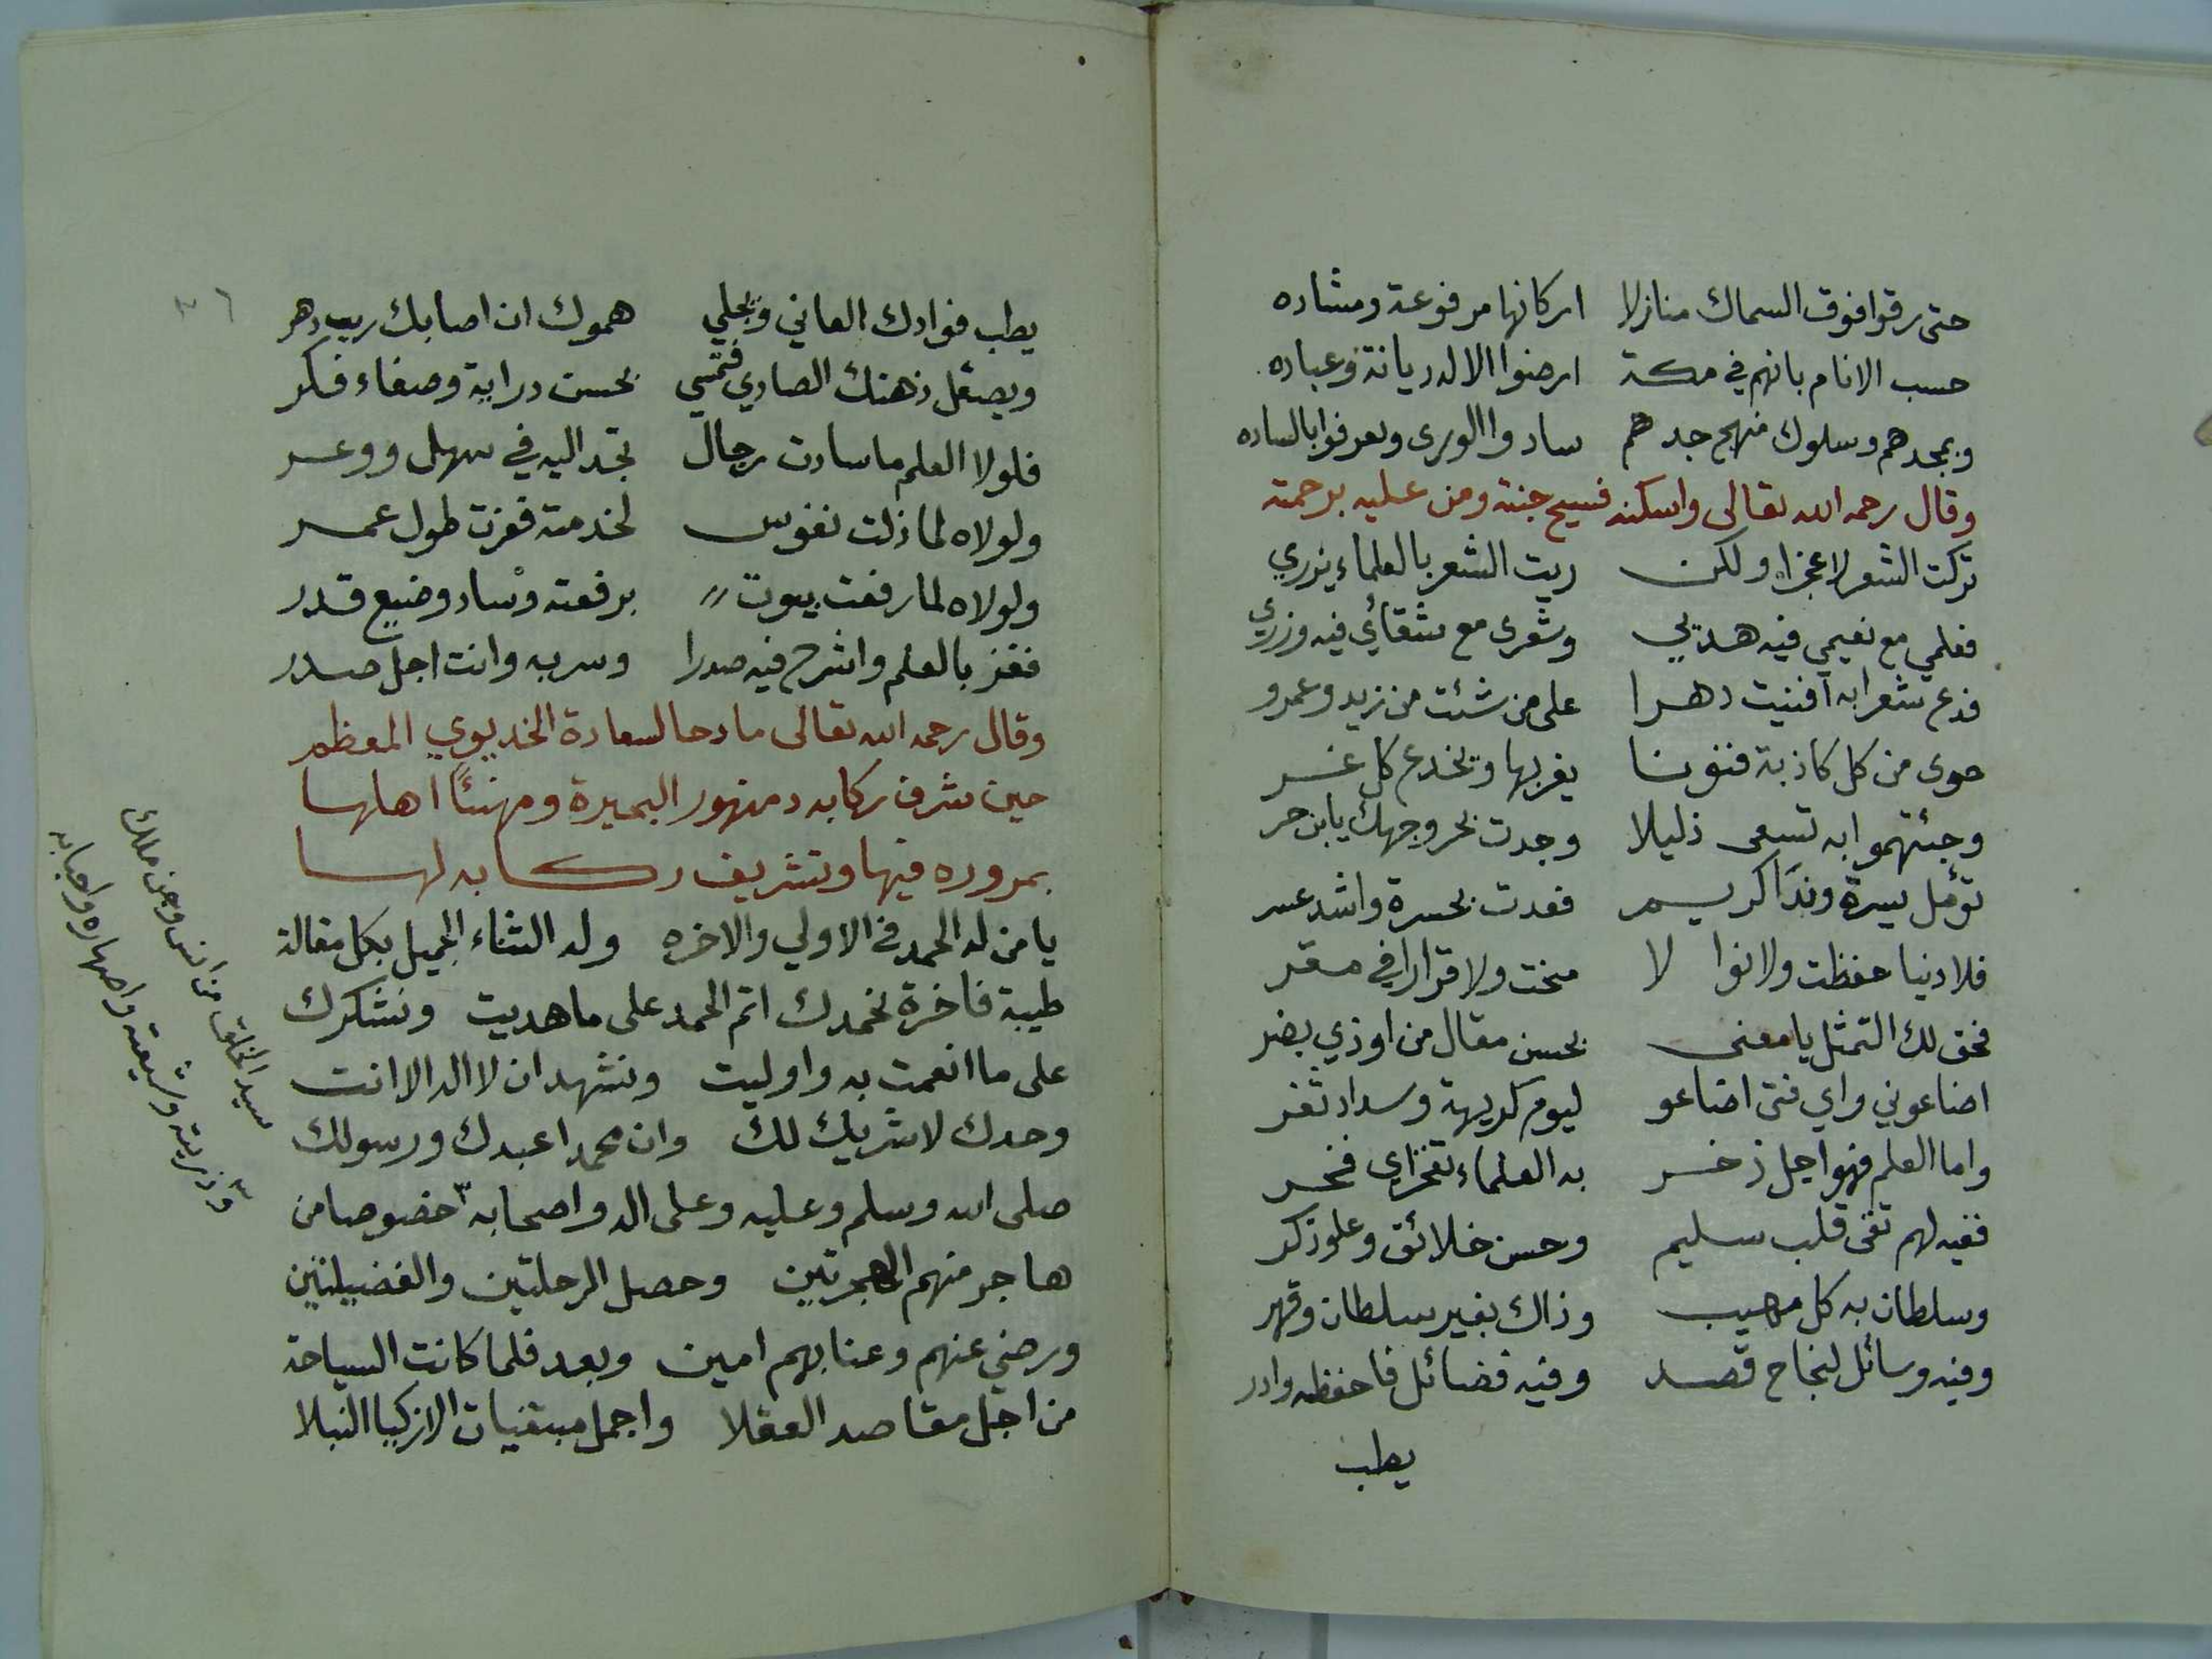 حتى رقوا فوق السماك منازلا اركانها مرفوعة ومشاده
حسب الانام بانهم في مكة ارضوا الاله ديانة وعباده
وبمجدهم وسلوك منهج جدهم سادوا الورى وتعرفوا بالساده
وقال رحمه الله تعالى واسكنه فسيح جنته ومن عليه برحمته
تركت الشعر لا عجزا ولكن ريت الشعر بالعلماء يزري
فعلمي مع نعيمي فيه هديي وشعرى مع شقائي فيه وزري
فدع شعرا به افنيت دهرا على من شئت من زيد وعمرو
حوى من كل كاذبة فنونا يغر بها ويخدع كل غر
وجئتهموا به تسعى ذليلا وجدت بحر وجهك يابن حر
تؤمل يسرة وندا كريم فعدت بحسرة واشد عسر
فلا دنيا حفظت ولا نوا لا منحت ولا قرارا في مقر
فحق لك التمثل يا معنى بحسن مقال من اوذي بضر
اضاعوني واي فتى اضاعو ليوم كريهة وسداد ثغر
واما العلم فهو اجل ذخر به العلماء تفخر اي فخر
ففيه لهم تقى قلب سليم وحسن خلائق وعلو ذكر
وسلطان به كل مهيب وذاك بغير سلطان وقهر
وفيه وسائل لنجاح قصد وفيه فضائل فاحفظه وادر
يطب
٣٦
يطب فوادك العاني ويجلي همومك ان اصابك ريب دهر
ويصقل ذهنك الصادي فتمسي بحسن دراية وصفاء فكر
فلولا العلم ما سادت رجال تجد اليه في سهل ووعر
ولولاه لما ذلت نفوس لخدمته فعزت طول عمر
ولولاه لما رفعت بيوت برفعته وساد وضيع قدر
ففز بالعلم واشرح فيه صدرا وسر به وانت اجل صدر
وقال رحمه الله تعالى مادحا لسعادة الخديوي المعظم
حين شرف ركابه دمنهور البحيرة ومهنئا اهلها
بمروره فيها وتشريف ركابه لها
يا من له الحمد في الاولي والاخره وله الثناء الجميل بكل مقالة
طيبة فاخرة نحمدك اتم الحمد على ما هديت ونشكرك
على ما انعمت به واوليت ونشهد ان لا اله الا انت
وحدك لا شريك لك وان محمدا عبدك ورسولك
صلى الله وسلم وعليه وعلى اله واصحابه خصوصا من
هاجر منهم الهجرتين وحصل المرحلتين والفضيلتين
ورضي عنهم وعنا بهم امين وبعد فلما كانت السياحة
من اجل مقاصد العقلا واجمل مبتغيات الازكيا النبلا
سيد الخلق من انس وجن وملك
وذريته وشيعته واصهاره واحبابه